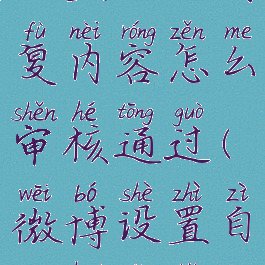 fù nèi róng zěn me
复内容怎么
shěn hé tōng guò
审核通过(
wēi bó shè zhì zì
微博设置自